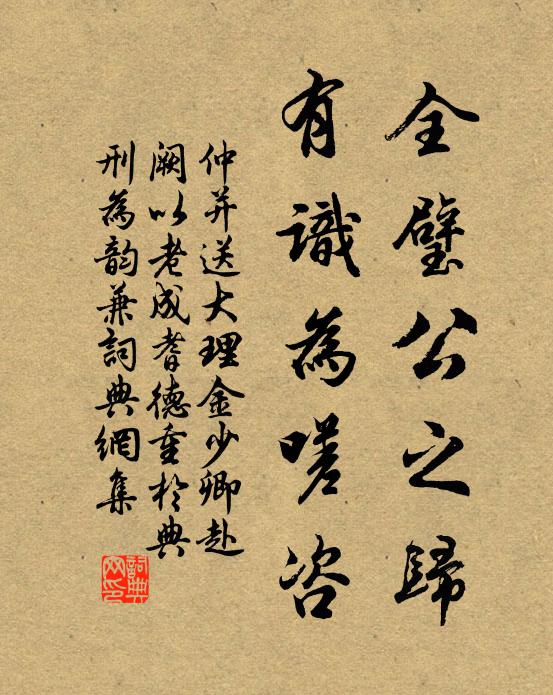 全璧公之歸
有識為嗟咨
仲并送大理金少卿赴
闕以老成耆德重於典
刑為韵兼詞典網集
詞典網印